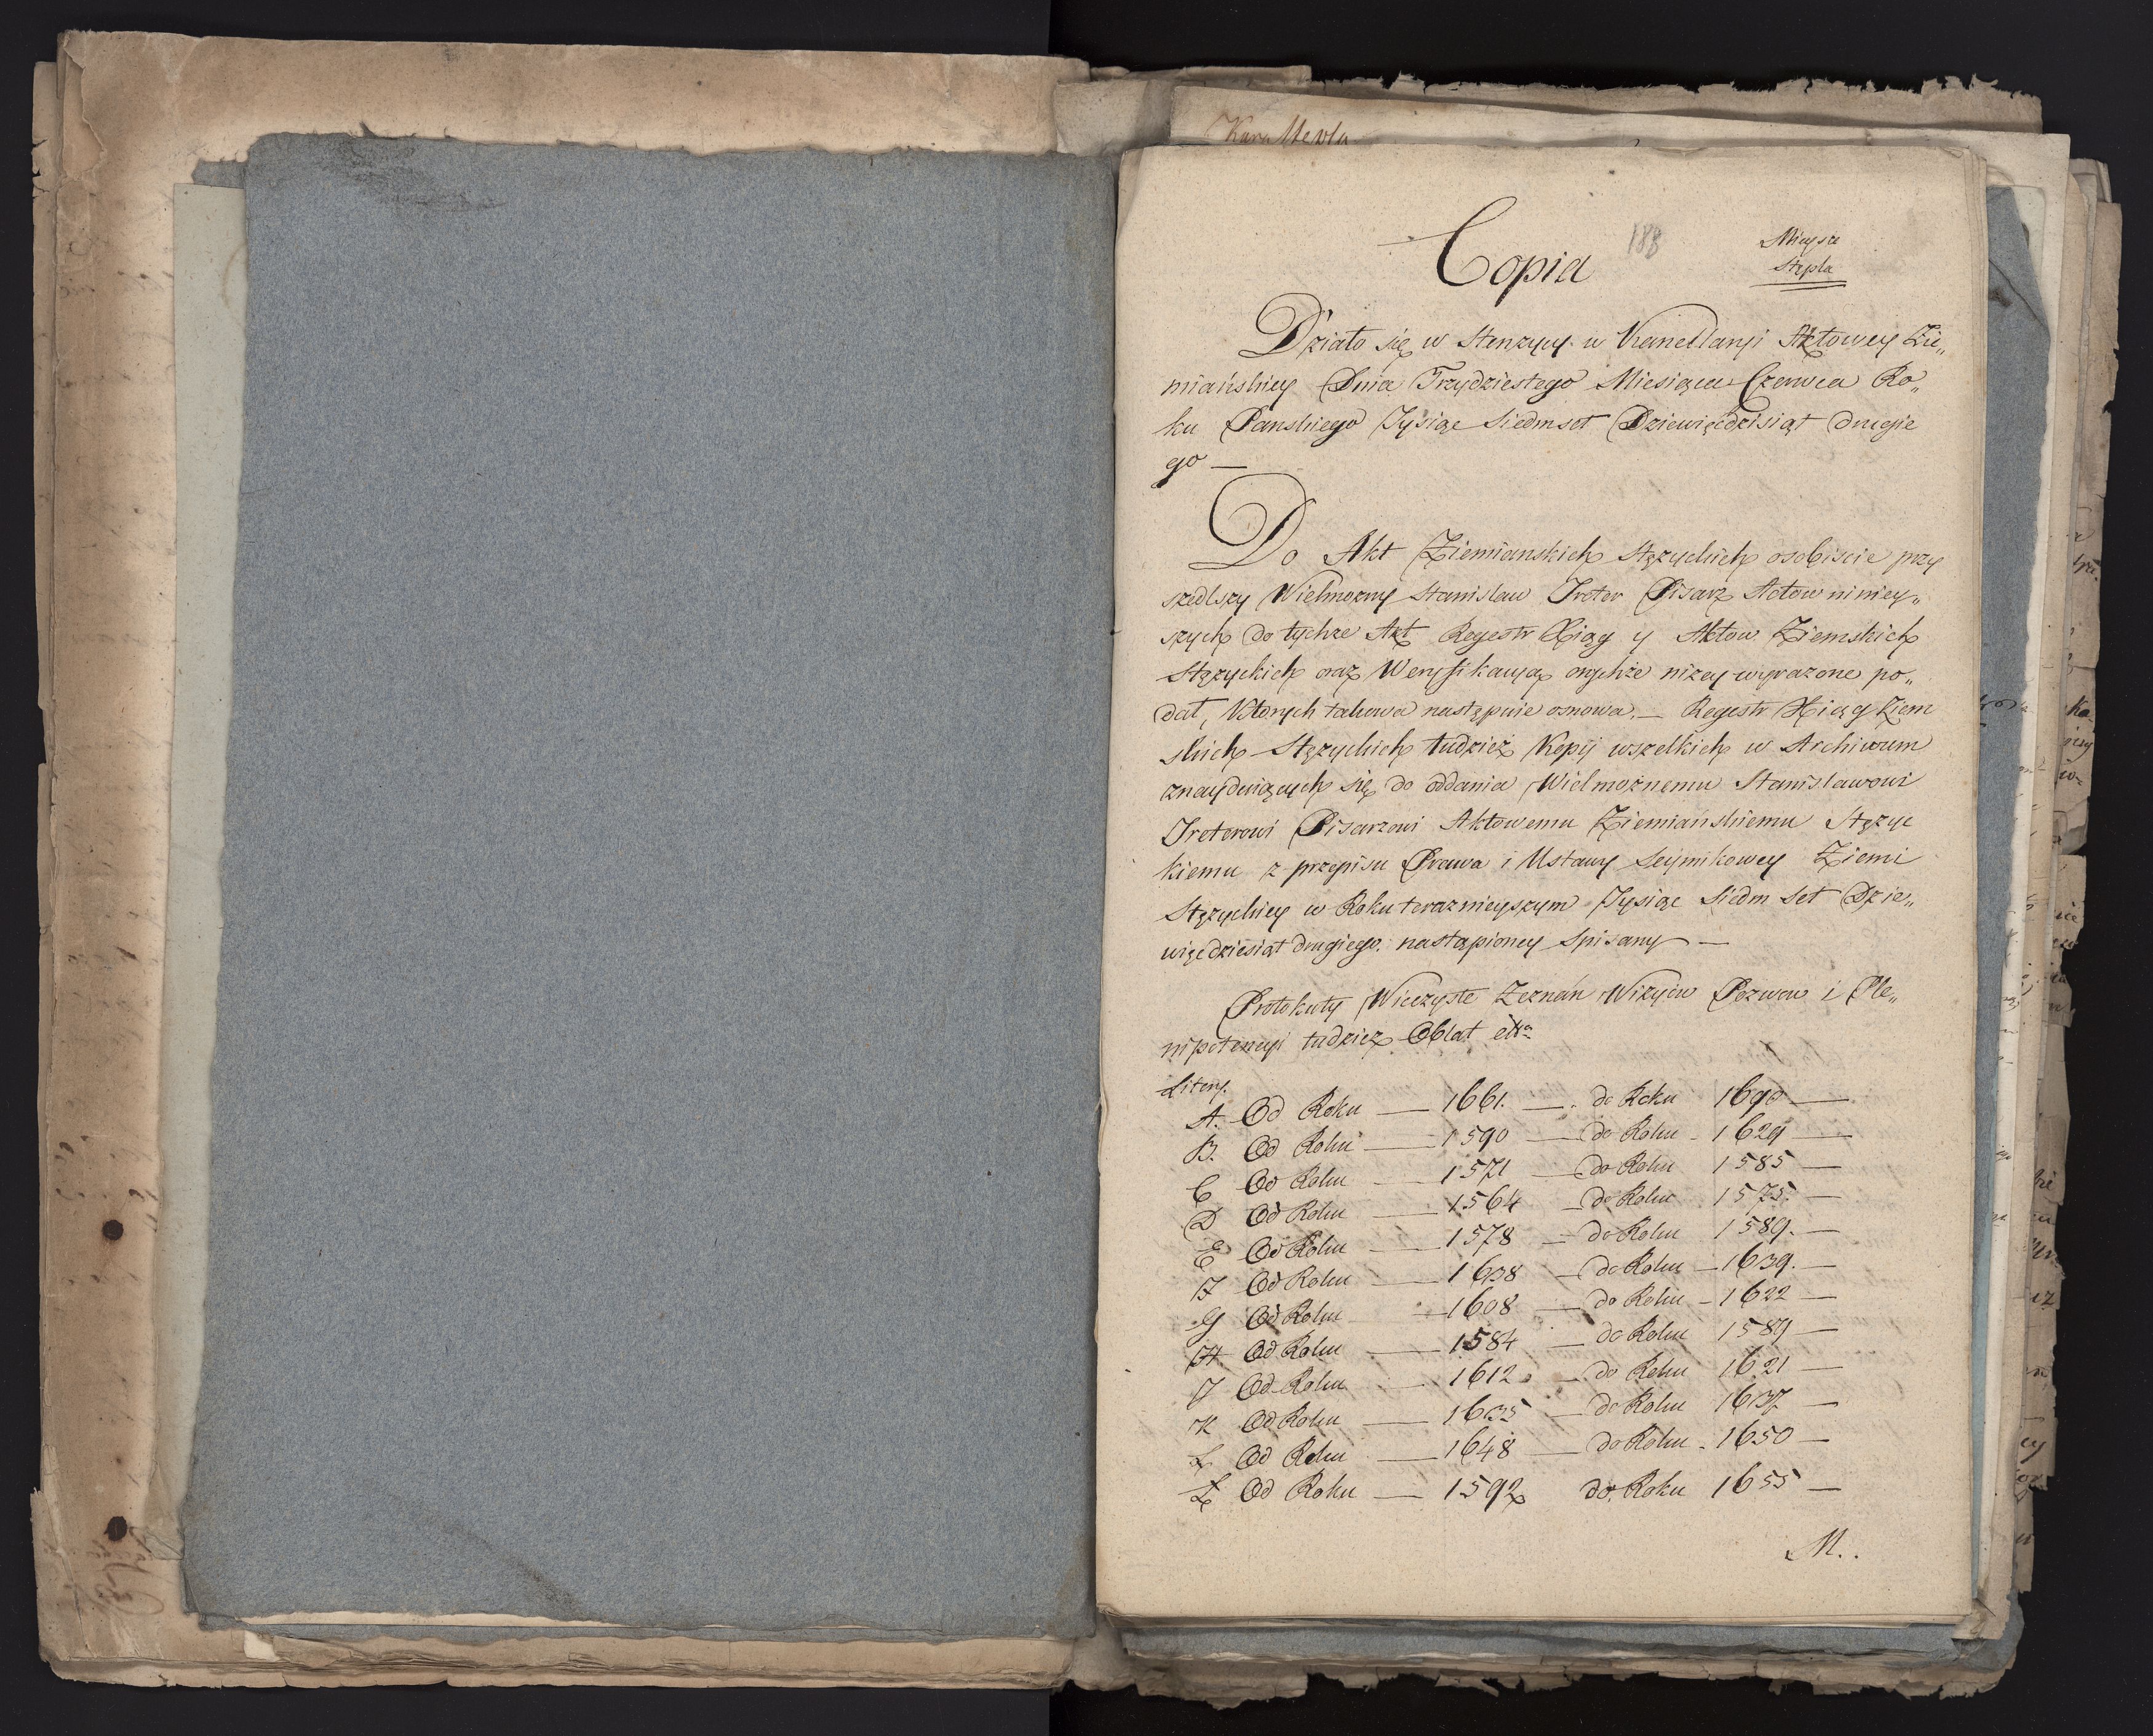 Copia
188
Mieysce
Stępla
Działo się w Stenzycy w Kancellaryi Aktowey Zie„
miańskiey Dnia Trzydziestego Miesiąca Czerwca Ro„
ku Panskiego Tysiąc Siedmset Dziewięćdzisiąt drugie
go —
Do Akt Ziemianskich Stęzyckich osobiscie przy
szedlszy Wielmozny Stanislaw Treter Pisarz Actow niniey„
szych do tychze Akt Regestr Xiąg y Aktow Ziemskich
Stęzyckich oraz Weryfikacyą onychże nizey wyrazone po„
dał, Ktorych takowa następuie osnowa. — Regestr Xiąg Ziem
skich Stęzyckich tudzież Kopij wszelkich w Archiwum
znayduiących się do oddania Wielmożnemu Stanisławowi
Treterowi Pisarzowi Aktowemu Ziemiańskiemu Stęzyc
kiemu z przepisu Prawa i Ustawy Seymikowey Ziemi
Stęzyckiey w Roku teraznieyszym Tysiąc Siedm Set Dzie„
więćdziesiąt drugiego nastąpioney spisany —
Protokuły Wieczyste Zeznań Wizyiow Pozwow i Ple„
nipotencyi tudziez Oblat etta
Litery.
A. Od Roku — 1661. — do Roku 1690 —
B. Od Roku — 1590 — do Roku - 1629 —
C Od Roku — 1571 — do Roku 1585 —
D Od Roku — 1564 — do Roku 1575. —
E Od Roku — 1578 — do Roku 1589. —
F Od Roku — 1638 — do Roku — 1639. —
G Od Roku — 1608 — do Roku — 1622 —
H Od Roku — 1584 — do Roku 1589 —
J Od Roku — 1612 — do Roku 1621 —
K Od Roku — 1635 — do Roku 1637 —
L Od Roku — 1648 — do Roku - 1650 —
Ł Od Roku — 1592 do Roku 1655 —
M..